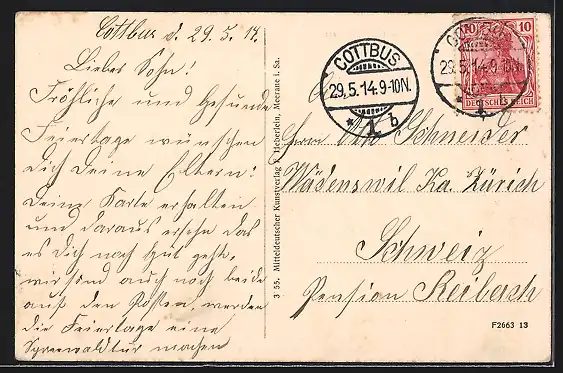 Cottbus d. 29.5.14.
Lieber Sohn!
Fröhliche und Gesunde
Feiertage wünschen
dich Deine Eltern!
Deine Karte erhalten
und daraus ersehe das
es Dich noch gut geht.
wir sind auch noch beide
auf den Posten, werden
die Feiertage eine
Spreewaldtur machen
3 55. Mitteldeutscher Kunstverlag Heberlein, Meerane i. Sa.
COTTBUS
29.5.14.9-10N.
* 1 b
10 10
DEUTSCHES REICH
29.5.14.9-10N.
Herrn Otto Schneider
Wädenswil Ka. Zürich
Schweiz
Pension Reibach
F2663 13